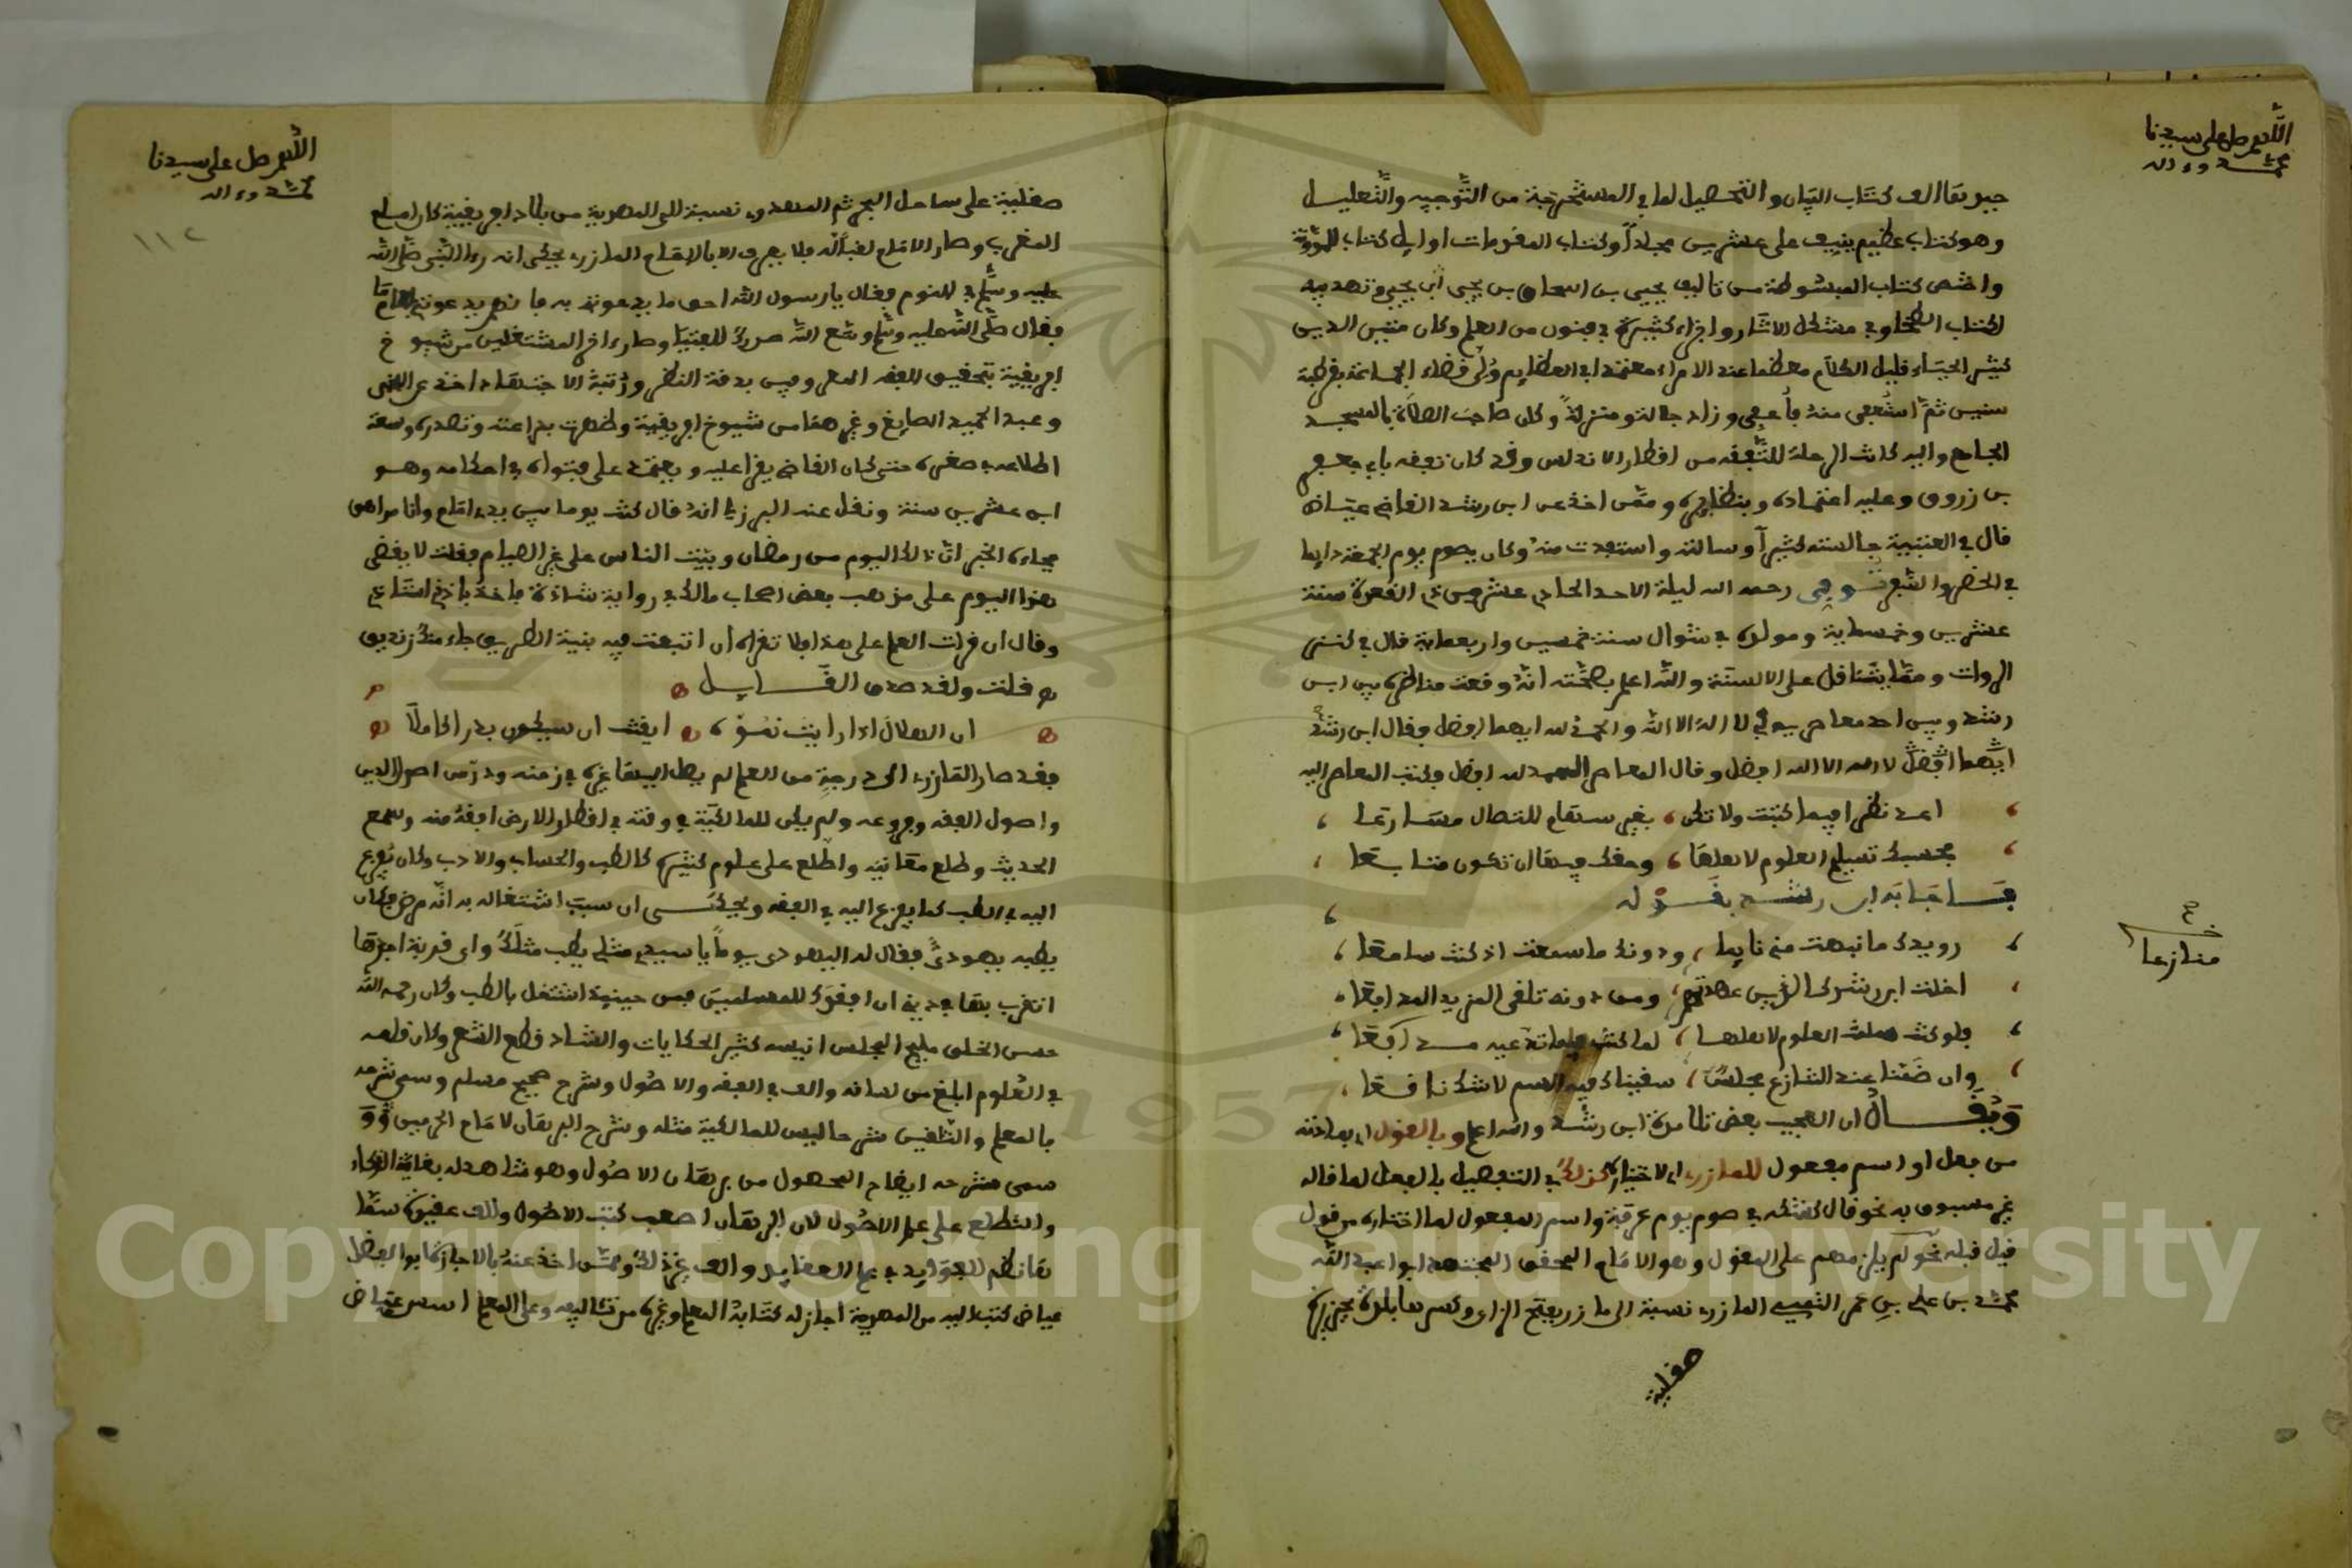 اللهم صل على سيدنا
محمد وءاله
جيوبقا الف كتاب البيان والتحصيل لما في المستخرجة من التوجيه والتعليل
وهو كتاب عظيم ينيف على عشرين مجلدا وكتاب المقدمات اوايل كتاب المدونة
واختصر كتاب المبسوطة من تاليف يحيى بن اسحاق بن يحيى ابن يحيى وتهذيبه
لكتاب الطحاوي في مشكل الاثار واجزاء كثيرة في فنون من العلم وكان متين الدين
كثير الحياء قليل الكلام معظما عند الامراء معتمدا في العظايم ولي قضاء الجماعة بقرطبة
سنين ثم استعفى منه فأعفي وزاد جلالة ومنزلة وكان صاحب الصلاة بالمسجد
الجامع واليه كانت الرحلة للتفقه من اقطار الاندلس وقد كان تفقه بابي جعفر
بن زروق وعليه اعتماده وبنظايره وممن اخذ عن ابن رشد القاضي عياض
قال في الغنية جالسته كثيرا وسالته واستفدت منه وكان يصوم يوم الجمعة دايما
في الحضر والسفر توفي رحمه الله ليلة الاحد الحادي عشر من ذي القعدة سنة
عشرين وخمسماية ومولده في شوال سنة خمسين واربعماية قال في كفى
الروات ومما يتناقل على الالسنة والله اعلم بصحته انه وقعت مناظرة بين ابن
رشد وبين احد معاصريه في لا اله الا الله والحمد لله ايهما افضل فقال ابن رشد
ايهما افضل لا اله الا الله افضل وقال المعاصر الحمد لله افضل وكتب المعاصر اليه
اعد نظرا فيما كتبت ولا تكن ، بغير سهام للنضال مسارعا
فحسبك تسليم العلوم لاهلها ، وحقك فيها ان تكون متابعا
فاجابه ابن رشد بقوله
رويدك ما نبهت مني نايما ، ودونك ما سمعت اذ كنت سامعا
اخلت ابن رشد كالذين عهدتهم ، ومن دونه تلقى الهزبر المدافعا
فلو كنت سلمت العلوم لاهلها ، لما كنت فيما تدعيه مدافعا
وان ضمنا عند التنازع مجلس ، سقيناك فيه السم لا شك ناقعا
منازعا
ويقال ان المجيب بعض تلامذة ابن رشد والله اعلم وبالقول اي بمادته
من فعل او اسم مفعول للمازري اي لاختياره كذلك في التفصيل بالفعل لما قاله
غير مسبوق به نحو قال كفتكه في صوم يوم عرفة واسم المفعول لما اختاره من قول
قيل قبله نحو لم يلزمهم على المقول وهو الامام المحقق المجتهد ابو عبد الله
محمد بن علي بن عمر التميمي المازري نسبة الى مازر بفتح الزاي وكسرها بلدة بجزيرة
صقلية
اللهم صل على سيدنا
محمد وءاله
١١٢
صقلية على ساحل البحر ثم المهدوي نسبة الى المهدية من بلاد افريقية كان امام
المغرب وصار الامام لقبا له فلا يعرف الا بالامام المازري يحكى انه رءا النبي صلى الله
عليه وسلم في النوم فقال يا رسول الله احق ما يدعونني به فانهم يدعونني بالامام
فقال صلى الله عليه وسلم وسع الله صدرك للفتيا وصار ءاخر المشتغلين من شيوخ
افريقية بتحقيق الفقه المعروفين بدقة النظر ورتبة الاجتهاد اخذ عن اللخمي
وعبد الحميد الصايغ وغيرهما من شيوخ افريقية وظهرت براعته وتصدره وسعة
اطلاعه في صغره حتى كان القاضي يقرا عليه ويعتمد على فتواه في احكامه وهو
ابن عشرين سنة ونقل عنه البرزلي انه قال كنت يوما بين يدي امام وانا مراهق
فجاءه الخبر ان ذلك اليوم من رمضان وبيت الناس على غير الصيام فقلت لا يقضى
هذا اليوم على مذهب بعض اصحاب مالك في رواية شاذة فاخذ باذني استاذي
وقال ان قرات العلم على هذا فلا تقراه ان اتبعت فيه بنية الطريق جاء منك زنديق
قلت ولقد صدق القايل
ان الهلال اذا رايت نموه ، ايقنت ان سيكون بدرا كاملا
فقد صار المازري الى درجة من العلم لم يصل اليها غيره في زمنه ودرس اصول الدين
واصول الفقه وفروعه ولم يكن للمالكية في وقته في اقطار الارض افقه منه وسمع
الحديث وطلع معانيه واطلع على علوم كثيرة كالطب والحساب والادب وكان يفزع
اليه في الطب كما يفزع اليه في الفقه ويحكى ان سبب اشتغاله به انه مرض فكان
يطبه يهودي فقال له اليهودي يوما يا سيدي مثلي يطب مثلك واي قربة اجدها
اتقرب بها في ديني ان افقدك للمسلمين فمن حينيذ اشتغل بالطب وكان رحمه الله
حسن الخلق مليح المجلس انيسه كثير الحكايات والنشاد قطع الشعر وكان قلمه
في العلوم ابلغ من لسانه والف في الفقه والاصول وشرح صحيح مسلم وسمى شرحه
بالمعلم والتلقين شرحا ليس للمالكية مثله وشرح البرهان لامام الحرمين
سمى شرحه ايضاح المحصول من برهان الاصول وهو شاهد له بغاية الذكاء
والتطلع على علم الاصول لان البرهان اصعب كتب الاصول والف عقيدة سماها
نظم الفوايد في علم العقايد والف غير ذلك وممن اخذ عنه بالاجازة ابو الفضل
عياض كتب اليه من المهدية اجاز له كتابه المعلم وغيره من تاليفه وعلى المعلم اسس عياض
Copyright © King Saud University
1957